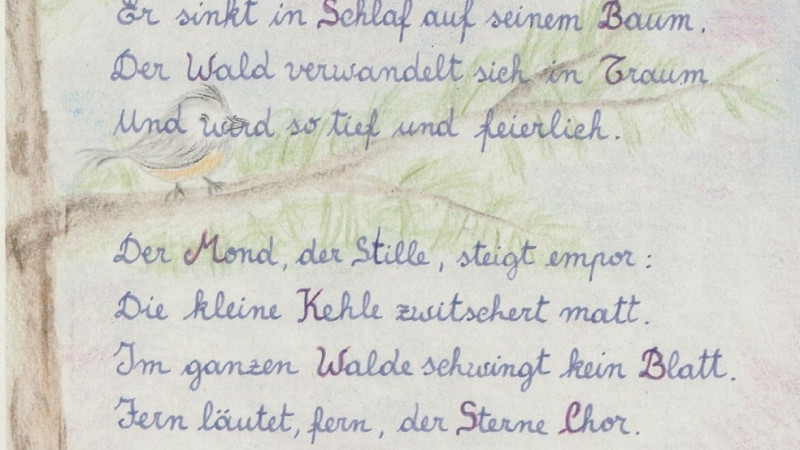 Er sinkt in Schlaf auf seinem Baum.
Der Wald verwandelt sich in Traum
Und wird so tief und feierlich.
Der Mond, der Stille, steigt empor:
Die kleine Kehle zwitschert matt.
Im ganzen Walde schwingt kein Blatt.
Fern läutet, fern, der Sterne Chor.